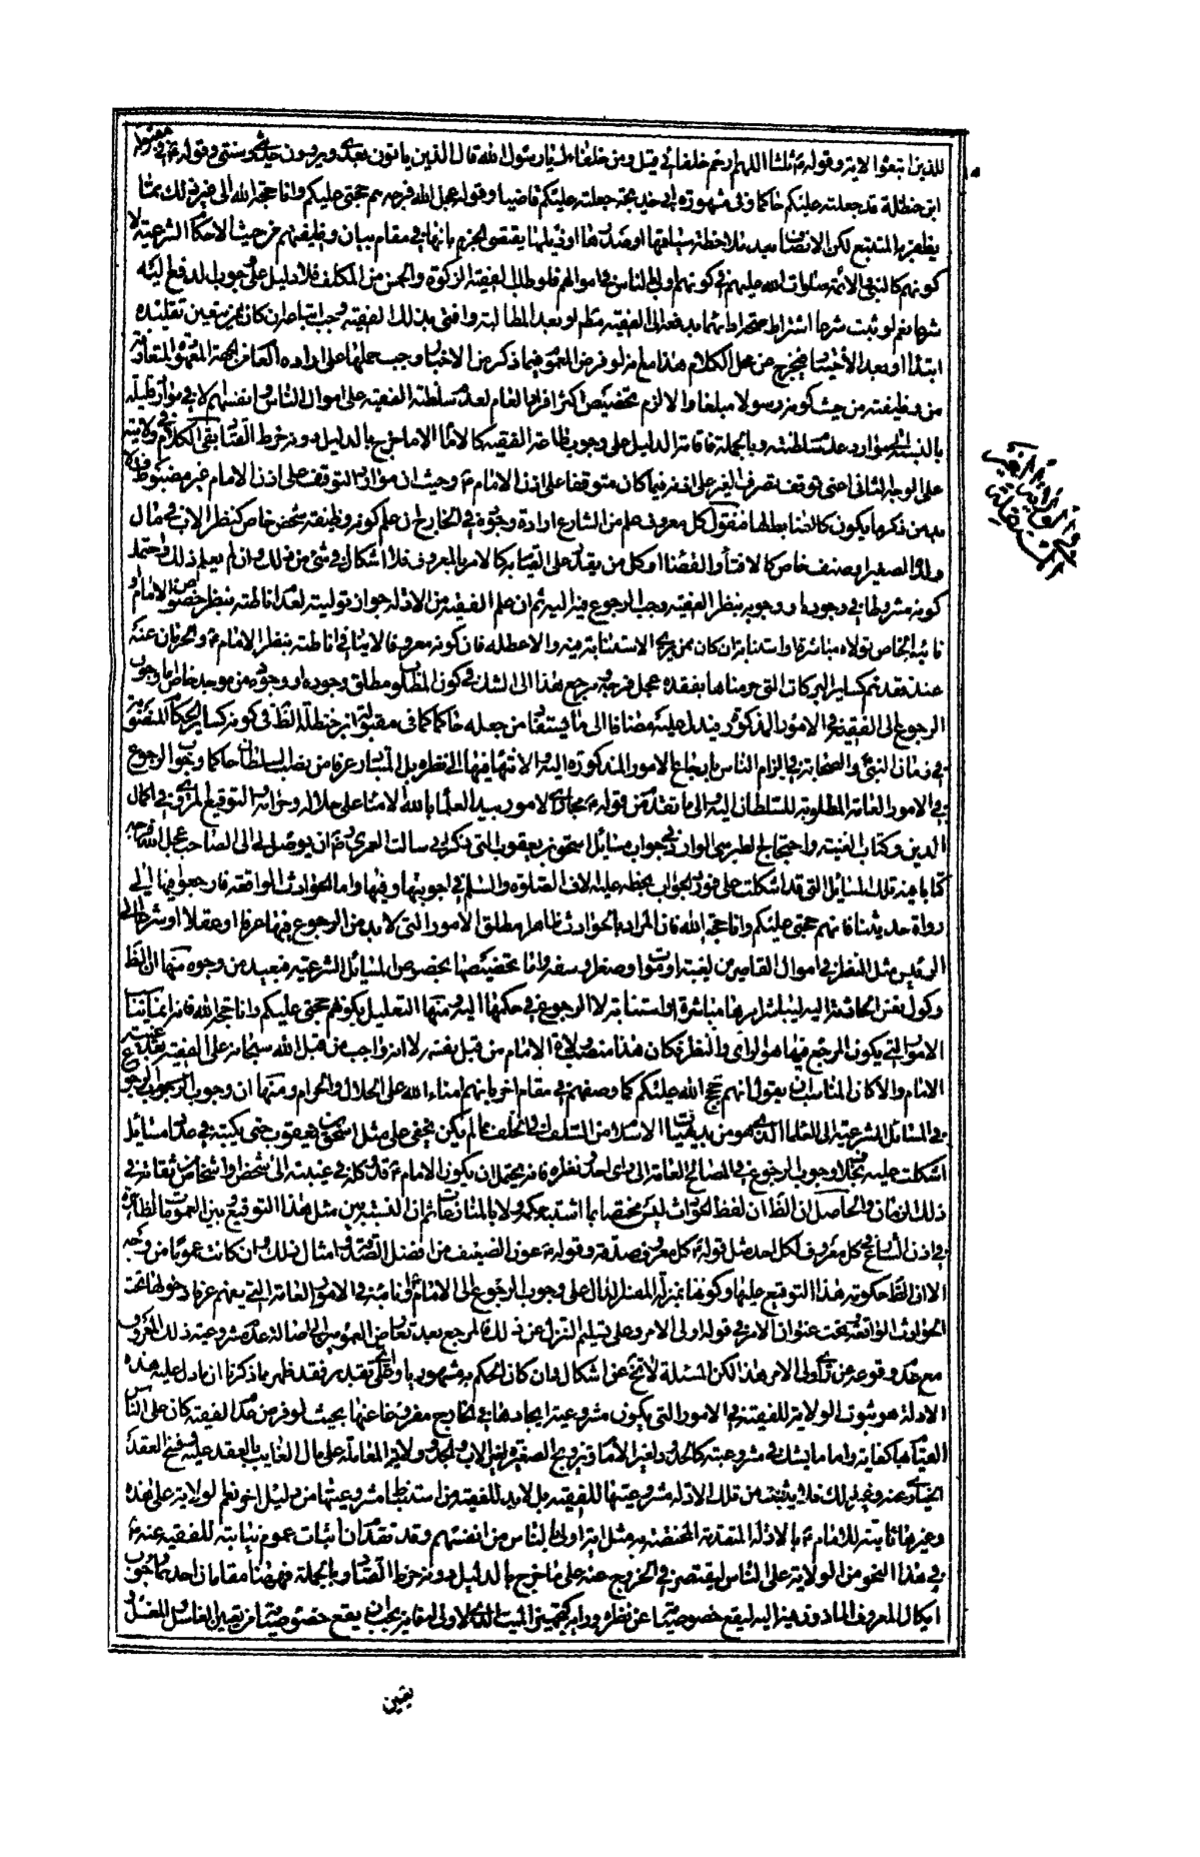 للذين اتبعوه الاية وقوله ع ثلثا اللهم ارحم خلفائي قيل ومن خلفائك يا رسول الله قال الذين ياتون بعدي ويروون حديثي وسنتي وقوله ع في مقبولة
ابن حنظلة قد جعلته عليكم حاكما وفي مشهورة ابي خديجة جعلته عليكم قاضيا وقوله عجل الله فرجه هم حجتي عليكم وانا حجة الله الى غير ذلك مما
يظفر به المتتبع لكن الانصاف بعد ملاحظة سياقها او صدرها او ذيلها يقتضي الجزم بانها في مقام بيان وظيفتهم من حيث الاحكام الشرعية لا
كونهم كالنبي والائمة صلوات الله عليهم في كونهم اولى بالناس في اموالهم فلو طلب الفقيه الزكوة والخمس من المكلف فلا دليل على وجوب الدفع اليه
شرعا نعم لو ثبت شرعا اشتراط صحة ادائهما بدفعه الى الفقيه مطلقا او بعد المطالبة وافتى بذلك الفقيه وجب اتباعه ان كان ممن يتعين تقليده
ابتداء او بعد الاختيار فيخرج عن محل الكلام هذا مع انه لو فرض العموم فيما ذكر من الاخبار وجب حملها على ارادة الجهة المعهودة المتعارفة
من وظيفته من حيث كونه رسولا مبلغا والا لزم تخصيص اكثر افراد العام لعدم سلطنة الفقيه على اموال الناس وانفسهم الا في موارد قليلة
بالنسبة الى موارد عدم سلطنته وبالجملة فاقامة الدليل على وجوب طاعة الفقيه كالامام الا ما خرج بالدليل دونه خرط القتاد بقي الكلام في ولايته
على الوجه الثاني اعني توقف تصرف الغير على اذنه فيما كان متوقفا على اذن الامام ع وحيث ان موارد التوقف على اذن الامام غير مضبوطة فلا
بد من ذكر ما يكون كالضابط لها فنقول كل معروف علم من الشارع ارادة وجوده في الخارج ان علم كونه وظيفة شخص خاص كنظر الاب في مال
ولده الصغير او صنف خاص كالافتاء والقضاء او كل من يقدر على القيام به كالامر بالمعروف فلا اشكال في شيء من ذلك وان لم يعلم ذلك واحتمل
كونه مشروطا في وجوده او وجوبه بنظر الفقيه وجب الرجوع فيه اليه ثم ان علم الفقيه من الادلة جواز توليته لعدم اناطته بنظر خصوص الامام او
نائبه الخاص تولاه مباشرة او استنابة ان كان ممن يرى الاستنابة فيه والا عطله فان كونه معروفا لا ينافي اناطته بنظر الامام ع والحرمان عنه
عند فقده كساير البركات التي حرمناها بفقده عجل فرجه ومرجع هذا الى الشك في كون المطلوب مطلق وجوده او وجوده من موجد خاص اما وجوب
الرجوع الى الفقيه في الامور المذكورة فيدل عليه مضافا الى ما يستفاد من جعله حاكما كما في مقبولة ابن حنظلة الظ في كونه كساير الحكام المنصوبة
في زمان النبي ص والصحابة في الزام الناس بارجاع الامور المذكورة اليه والانتهاء فيها الى نظره بل المتبادر عرفا من نصب السلطان حاكما وجوب الرجوع
في الامور العامة المطلوبة للسلطان اليه والى ما تقدم من قوله ع مجاري الامور بيد العلماء بالله الامناء على حلاله وحرامه التوقيع المروي في اكمال
الدين وكتاب الغيبة واحتجاج الطبرسي الوارد في جواب مسائل اسحق بن يعقوب التي ذكر اني سالت العمري رض ان يوصل لي الى الصاحب عجل الله فرجه
كتابا فيه تلك المسائل التي قد اشكلت علي فورد الجواب بخطه عليه الاف الصلوة والسلم في اجوبتها وفيها واما الحوادث الواقعة فارجعوا فيها الى
رواة حديثنا فانهم حجتي عليكم وانا حجة الله فان المراد بالحوادث ظاهرا مطلق الامور التي لا بد من الرجوع فيها عرفا او عقلا او شرعا الى
الرئيس مثل النظر في اموال القاصرين لغيبة او موت او صغر او سفه واما تخصيصها بخصوص المسائل الشرعية فبعيد من وجوه منها ان الظ
وكول نفس الحادثة اليه ليباشر امرها مباشرة او استنابة لا الرجوع في حكمها اليه ومنها التعليل بكونهم حجتي عليكم وانا حجة الله فانه انما يناسب
الامور التي يكون المرجع فيها هو الراي والنظر فكان هذا منصب ولاة الامام من قبل نفسه لا انه واجب من قبل الله سبحانه على الفقيه بعد غيبة
الامام والا كان المناسب ان يقول انهم حجج الله عليكم كما وصفهم في مقام اخر بانهم امناء الله على الحلال والحرام ومنها ان وجوب الرجوع
في المسائل الشرعية الى العلماء الذي هو من بديهيات الاسلام من السلف الى الخلف مما لم يكن يخفى على مثل اسحق بن يعقوب حتى يكتبه في عداد مسائل
اشكلت عليه بخلاف وجوب الرجوع في المصالح العامة الى راي احد ونظره فانه يحتمل ان يكون الامام ع قد وكله في غيبته الى شخص او اشخاص من ثقاته في
ذلك الزمان والحاصل ان الظ ان لفظ الحوادث ليس مختصا بما اشتبه حكمه ولا بالمنازعات ثم ان النسبة بين مثل هذا التوقيع وبين العمومات الظاهرة
في اذن الشارع في كل معروف لكل احد مثل قوله ع كل معروف صدقة وقوله ع عون الضعيف من افضل الصدقة وامثال ذلك وان كانت عموما من وجه
الا ان الظ حكومة هذا التوقيع عليها وكونها بمنزلة المفسر الدال على وجوب الرجوع الى الامام ع او نائبه في الامور العامة التي يفهم عرفا دخولها تحت
الحوادث الواقعة وتحت عنوان الامر في قوله اولي الامر وعلى تسليم التنزل عن ذلك فالمرجع بعد تعارض العمومين الى اصالة عدم مشروعية ذلك المعروف
مع عدم وقوعه عن راي ولي الامر هذا لكن المسئلة لا تخ عن اشكال وان كان الحكم به مشهوريا وعلى اي تقدير فقد ظهر مما ذكرنا ان ما دل عليه هذه
الادلة هو ثبوت الولاية للفقيه في الامور التي يكون مشروعية ايجادها في الخارج مفروغا عنها بحيث لو فرض عدم الفقيه كان على الناس
القيام بها كفاية واما ما يشك في مشروعيته كالحدود لغير الامام وتزويج الصغيرة لغير الاب والجد وولاية المعاملة على مال الغايب بالعقد عليه وفسخ العقد
الخياري عنه وغير ذلك فلا يثبت من تلك الادلة مشروعيتها للفقيه بل لا بد للفقيه من استنباط مشروعيتها من دليل اخر نعم الولاية على هذه
وغيرها ثابتة للامام ع بالادلة المتقدمة المختصة به مثل اية اولى بالناس من انفسهم وقد تقدم ان اثبات عموم نيابته للفقيه عنه ع
في هذا النحو من الولاية على الناس ليقتصر في الخروج عنه على ما خرج بالدليل دونه خرط القتاد وبالجملة فههنا مقامان احدهما وجوب
ايكال المعروف الماذون فيه اليه ليقع خصوصياته عن نظره ورايه كتجهيز الميت الذي لا ولي له فانه يجب ان يقع خصوصياته من تعيين الغاسل والمغسل
يقين